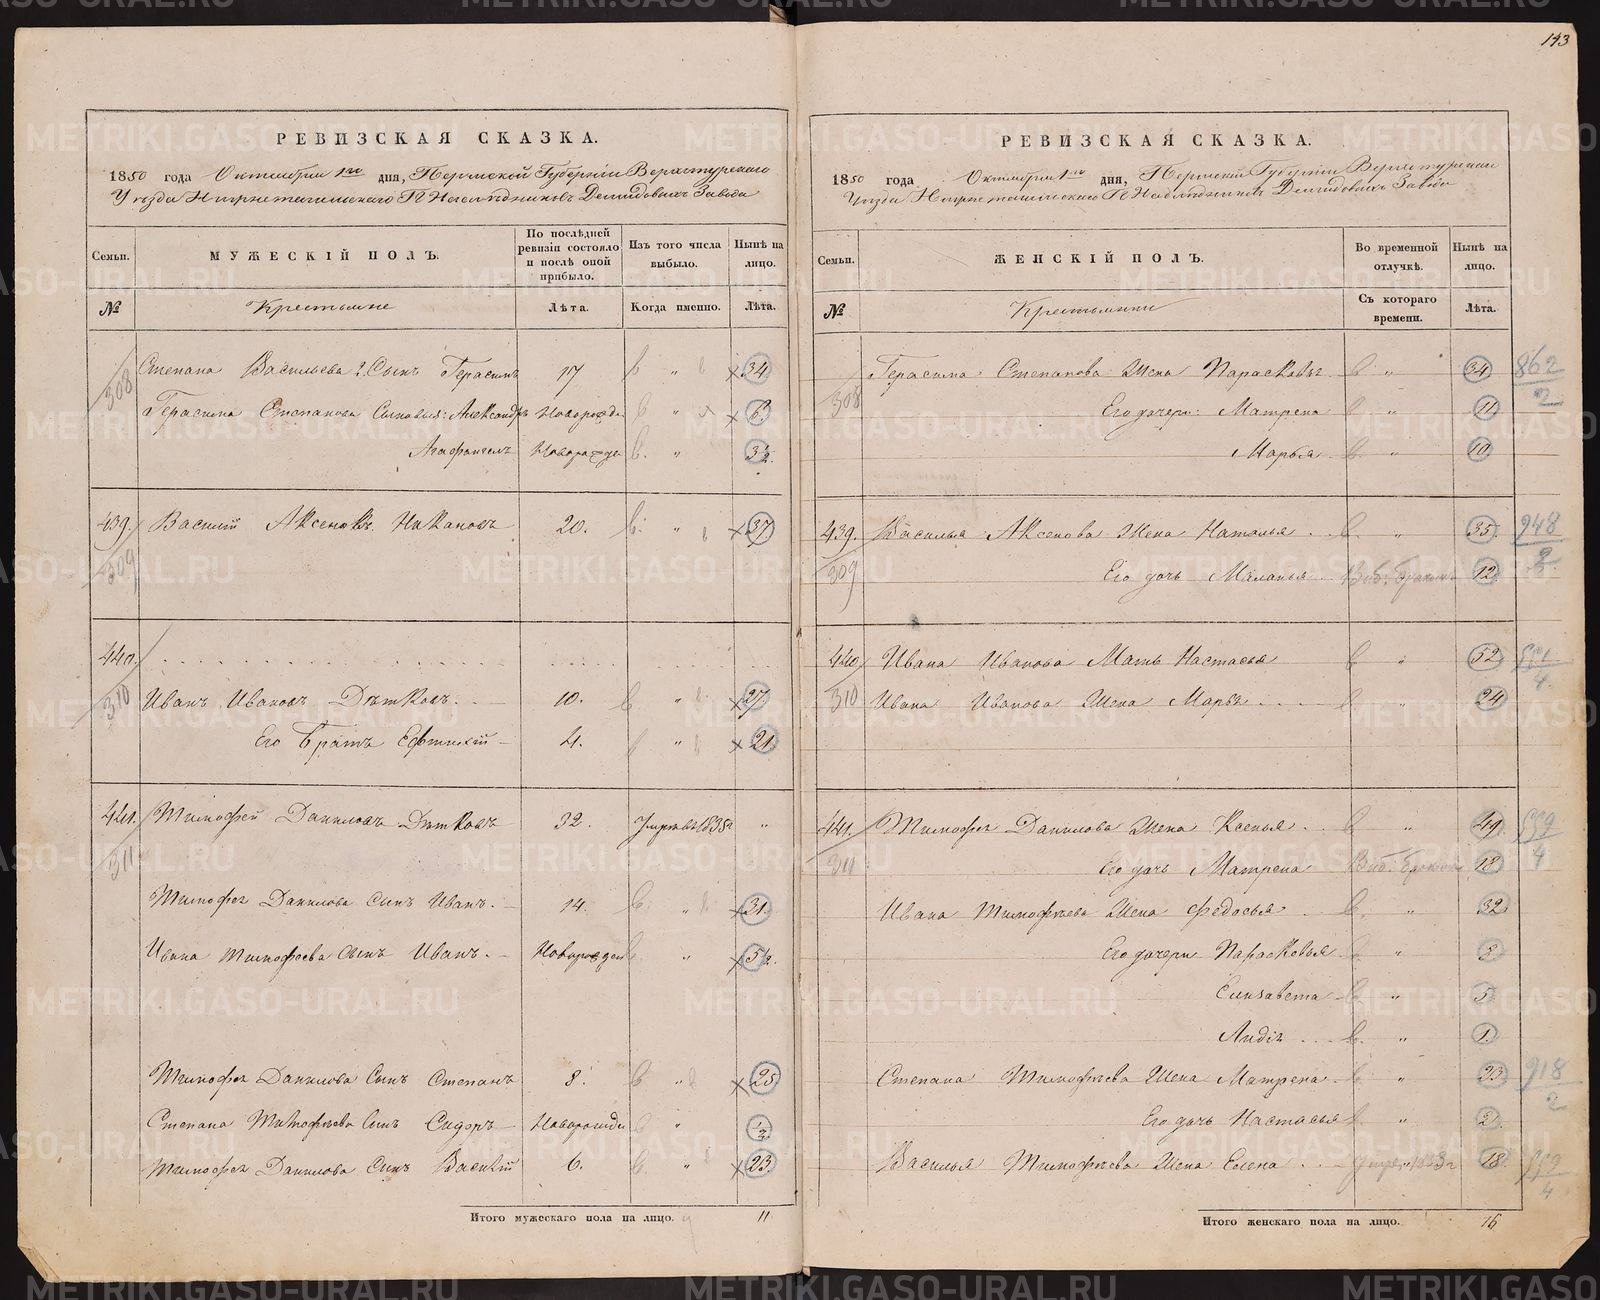 143
РЕВИЗСКАЯ СКАЗКА.
1850 года Октября 1го дня, Пермской Губернiи Верхотурскаго
Уезда Нижнетагильскаго Гг Наследниковъ Демидовыхъ Завода
Семьи.
МУЖЕСКIЙ ПОЛЪ.
По послѣдней ревизiи состояло и послѣ оной прибыло.
Изъ того числа выбыло.
Нынѣ на лицо.
№
Крестьяне
Лѣта.
Когда именно.
Лѣта.
308 Степана Васильева 2. Сынъ Герасимъ 17 " 34
Герасима Степанова Сыновья: Александръ Новорожде " 6
Агафангелъ Новорожде " 3½
439. Василiй Аксеновъ Накановъ 20. " 37
309
440.
310 Иванъ Ивановъ Дѣтковъ. 10. " 27
Его Братъ Ефтихiй 4. " 21
441. Тимофей Даниловъ Дѣтковъ 32. Умре въ 1835 "
311
Тимофея Данилова Сынъ Иванъ. 14. " 31
Ивана Тимофеева Сынъ Иванъ. Новорожден " 5½
Тимофея Данилова Сынъ Степанъ 8. " 25
Степана Тимофѣева Сынъ Сидоръ Новорожде " ½
Тимофея Данилова Сынъ Василiй 6. " 23
Итого мужескаго пола на лицо. 11
РЕВИЗСКАЯ СКАЗКА.
1850 года Октября 1го дня, Пермской Губернiи Верхотурскаго
Уезда Нижнетагильскаго Гг Наследниковъ Демидовыхъ Завода
Семьи.
ЖЕНСКIЙ ПОЛЪ.
Во временной отлучкѣ.
Нынѣ на лицо.
№
Крестьянки
Съ котораго времени.
Лѣта.
308 Герасима Степанова Жена Парасковья " 34 862/2
Его дочери: Матрена " 11
Марья " 10
439. Василья Аксенова Жена Наталья " 35 948
309 Его дочь Маланья Выб. браком 12
440 Ивана Иванова Мать Настасья " 52
310 Ивана Иванова Жена Марья " 24
441. Тимофея Данилова Жена Ксенья " 49
311 Его дочь Матрена Выб. браком 18
Ивана Тимофѣева Жена Федосья " 32
Его дочери Парасковья " 8
Елизавета " 5
Лидiя " 1.
Степана Тимофѣева Жена Матрена " 23 918/2
Его дочь Настасья " 2
Василья Тимофѣева Жена Елена 18
Итого женскаго пола на лицо. 16
METRIKI.GASO-URAL.RU